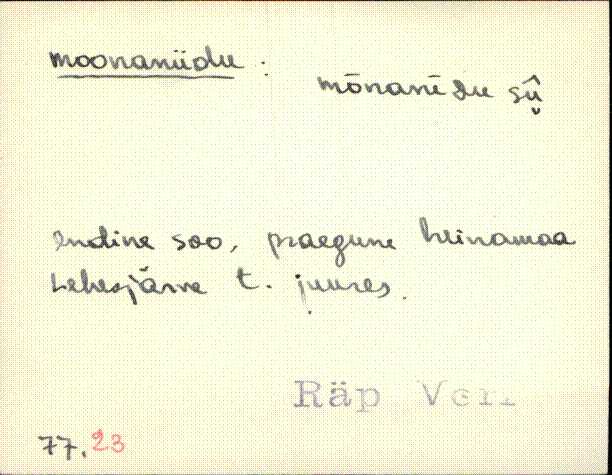 moonaniidu :
mōnanīdu sṷ̂
endine soo, praegune heinamaa
Lehesjärve t. juures.
Räp
77. 23